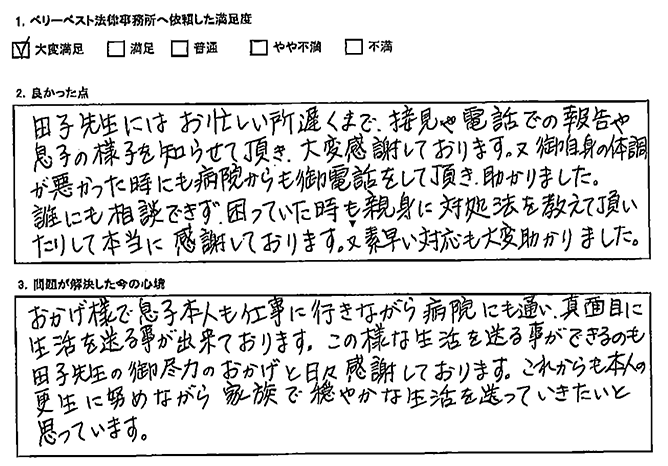 1. ベリーベスト法律事務所へ依頼した満足度
☑ 大変満足 □ 満足 □ 普通 □ やや不満 □ 不満
2. 良かった点
田子先生には お忙しい所遅くまで、接見や電話での報告や
息子の様子を知らせて頂き、大変感謝しております。又御自身の体調
が悪かった時にも病院からも御電話をして頂き、助かりました。
誰にも相談できず、困っていた時も親身に対処法を教えて頂い
たりして本当に感謝しております。又素早い対応も大変助かりました。
3. 問題が解決した今の心境
おかげ様で息子本人も仕事に行きながら病院にも通い、真面目に
生活を送る事が出来ております。この様な生活を送る事ができるのも
田子先生の御尽力のおかげと日々感謝しております。これからも本人の
更生に努めながら家族で穏やかな生活を送っていきたいと
思っています。